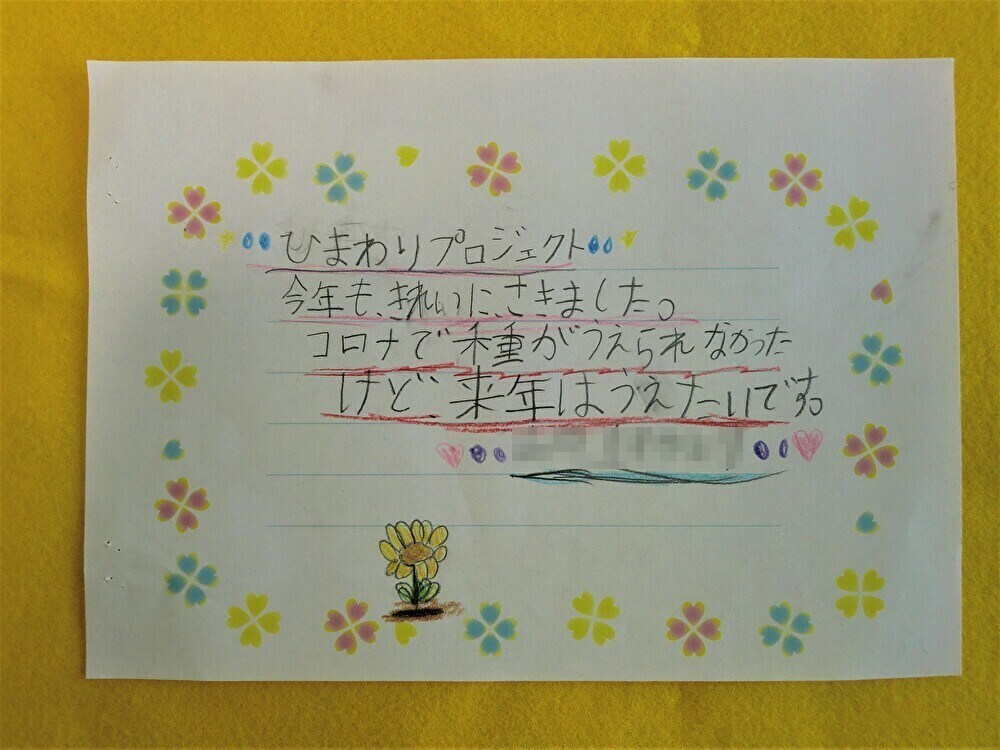 ひまわりプロジェクト
今年も、きれいに、さきました。
コロナで種がうえられなかった
けど、来年はうえたいです。